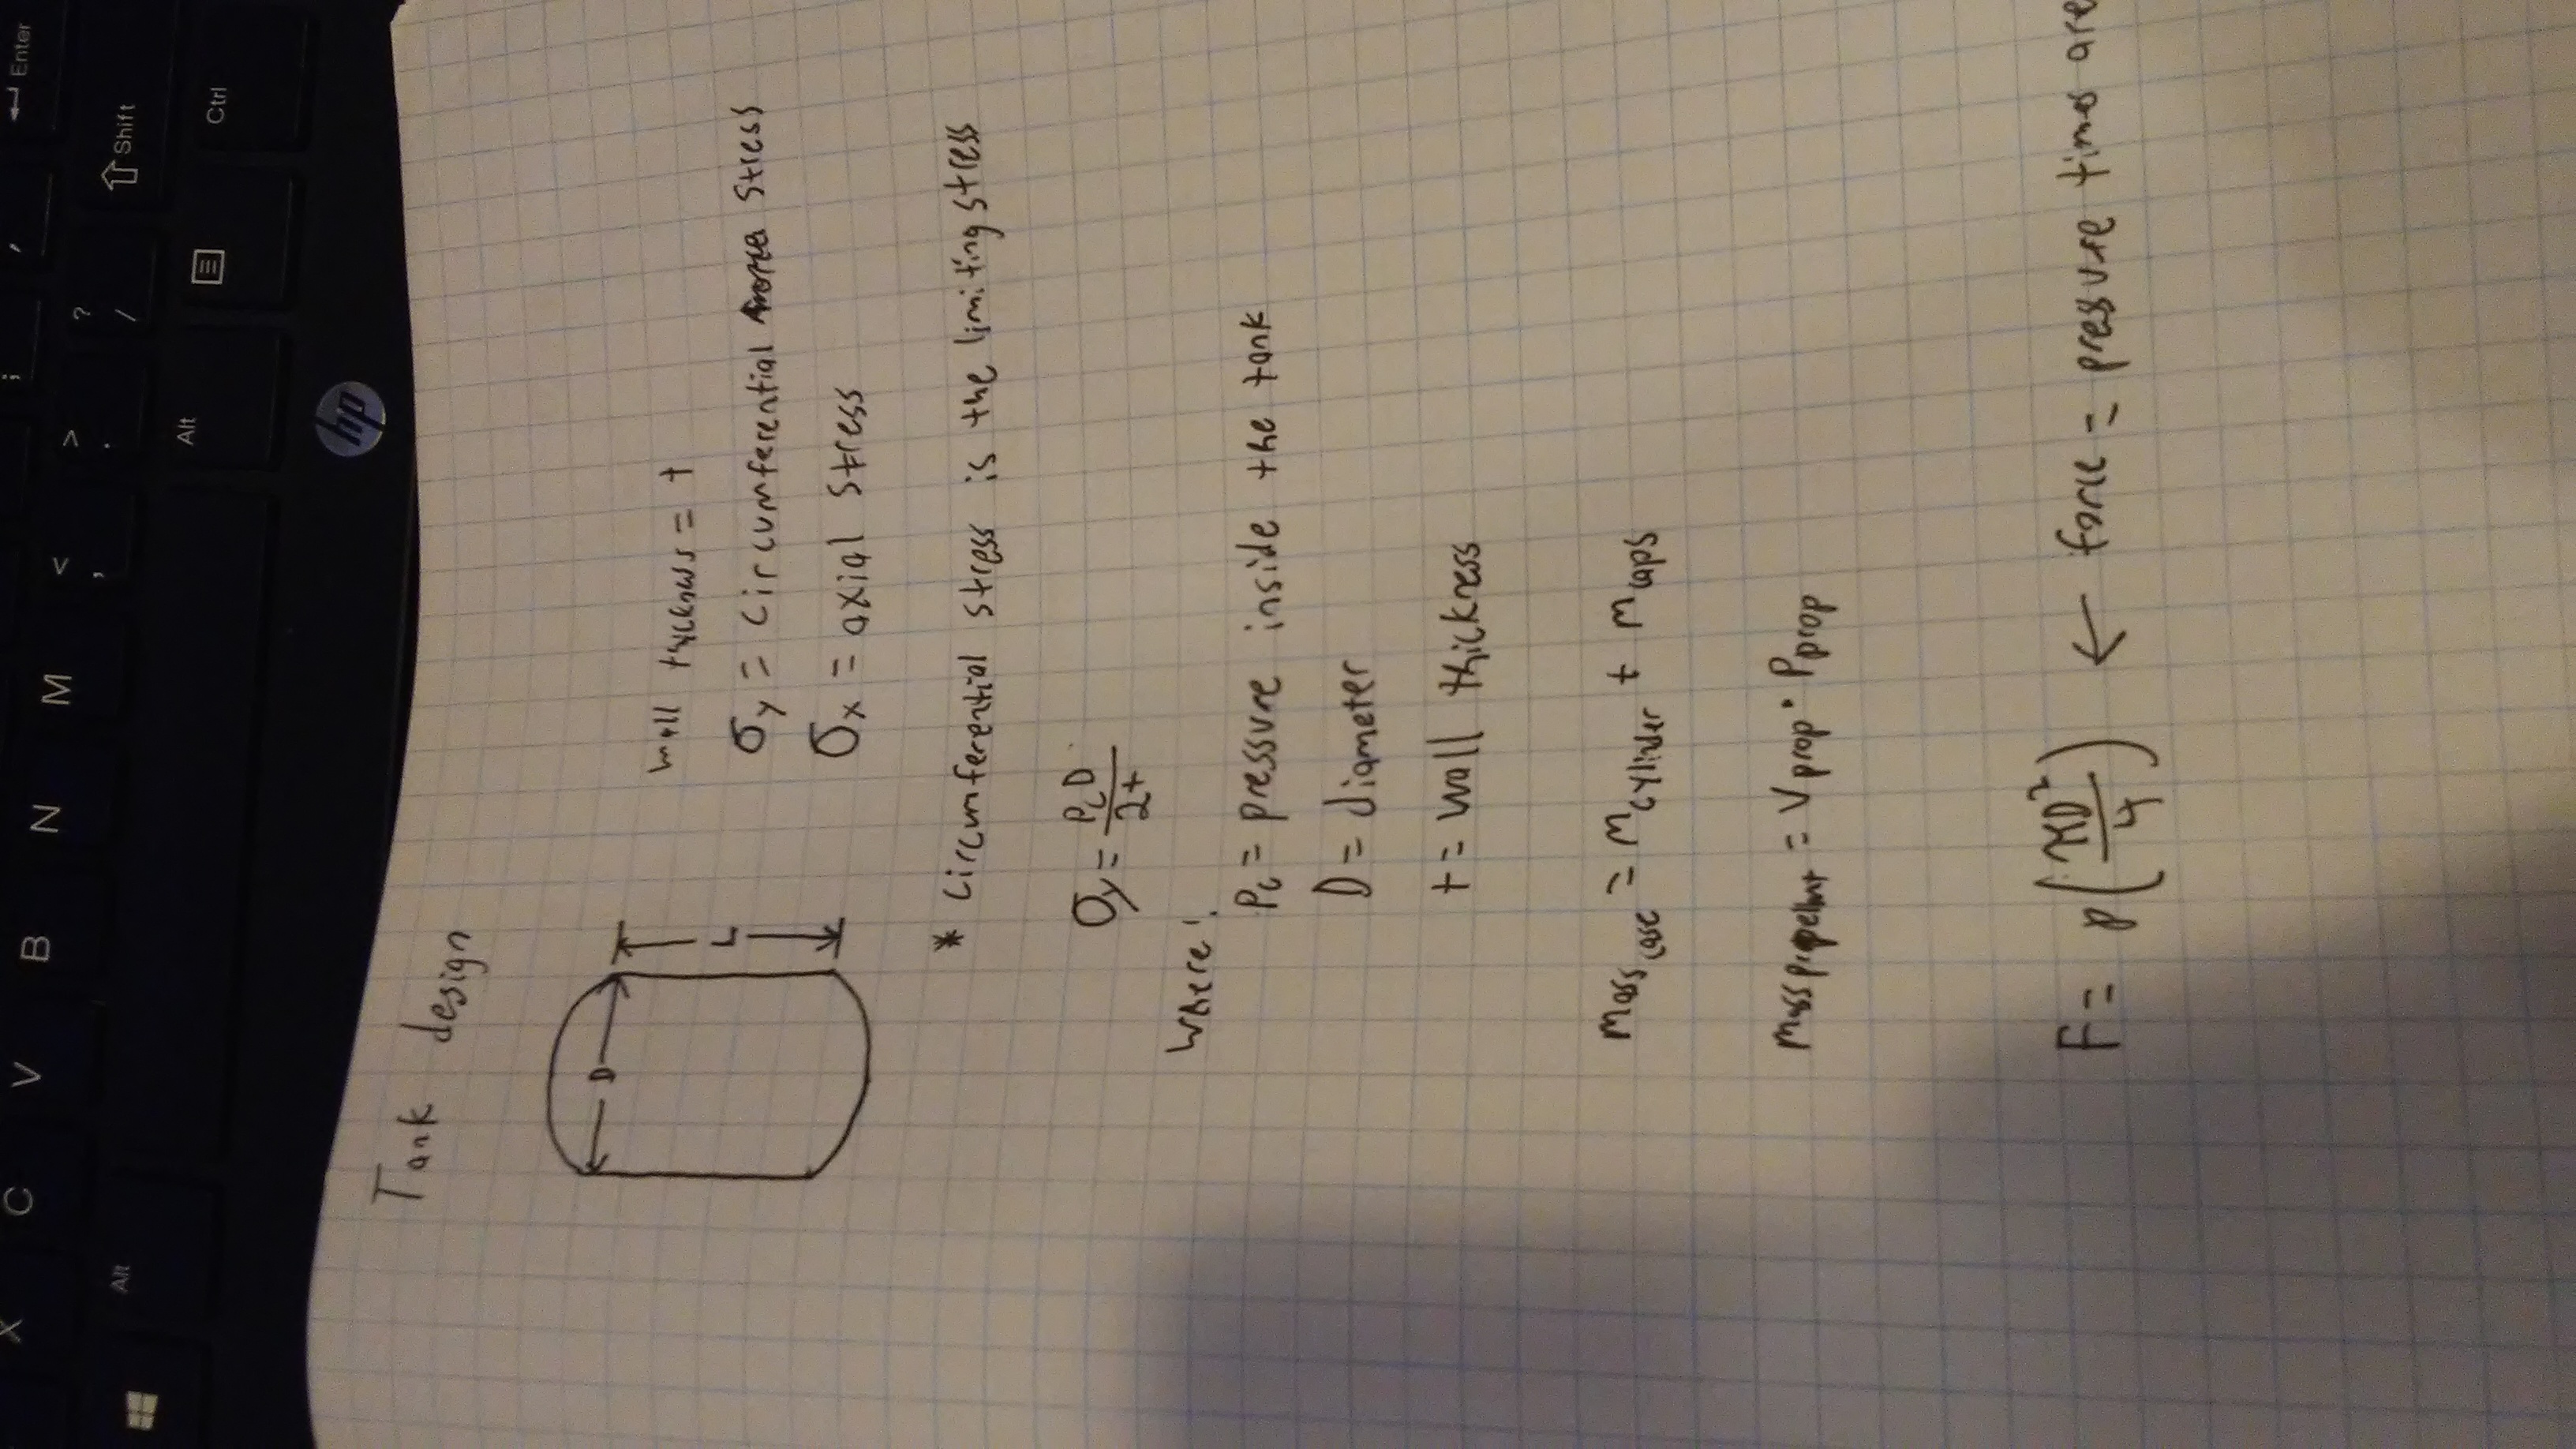 X C V B N M < , > . ? / ; ' Enter
Alt Alt Shift Ctrl
hp
Tank design
D
L
wall thickness = t
σy = circumferential stress
σx = axial stress
* circumferential stress is the limiting stress
σy = PcD / 2t
Where:
Pc = pressure inside the tank
D = diameter
t = wall thickness
mass case = m cylinder + m caps
mass propellant = V prop · ρ prop
F = p(πD²/4) ← force = pressure times are